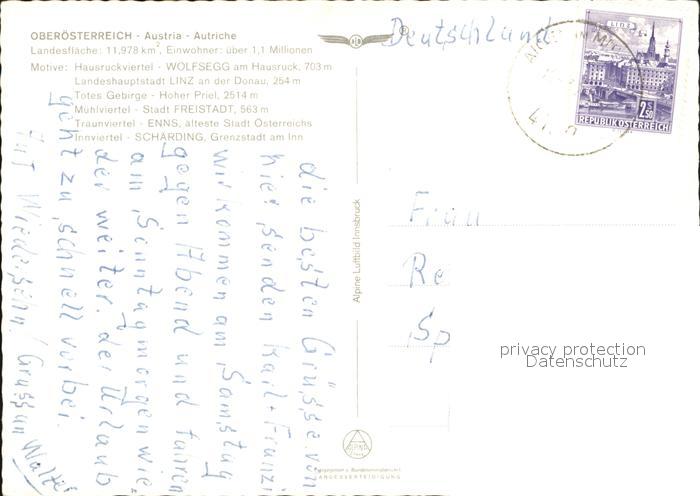 OBERÖSTERREICH - Austria - Autriche
Landesfläche: 11,978 km², Einwohner: über 1,1 Millionen
Motive: Hausruckviertel - WOLFSEGG am Hausruck, 703 m
Landeshauptstadt LINZ an der Donau, 254 m
Totes Gebirge - Hoher Priel, 2514 m
Mühlviertel - Stadt FREISTADT, 563 m
Traunviertel - ENNS, älteste Stadt Österreichs
Innviertel - SCHÄRDING, Grenzstadt am Inn
die besten Grüsse von
hier senden Karl + Franzi
wir kommen am Samstag
gegen Abend und fahren
am Sonntagmorgen wie-
der weiter. der Urlaub
geht zu schnell vorbei.
Auf Wiedersehn. / Gruss an Walter
Alpine Luftbild Innsbruck
Deutschland
LINZ
2 S 50
REPUBLIK ÖSTERREICH
Frau
Re
Sp
privacy protection
Datenschutz
ALPINE
LANDESVERTEIDIGUNG